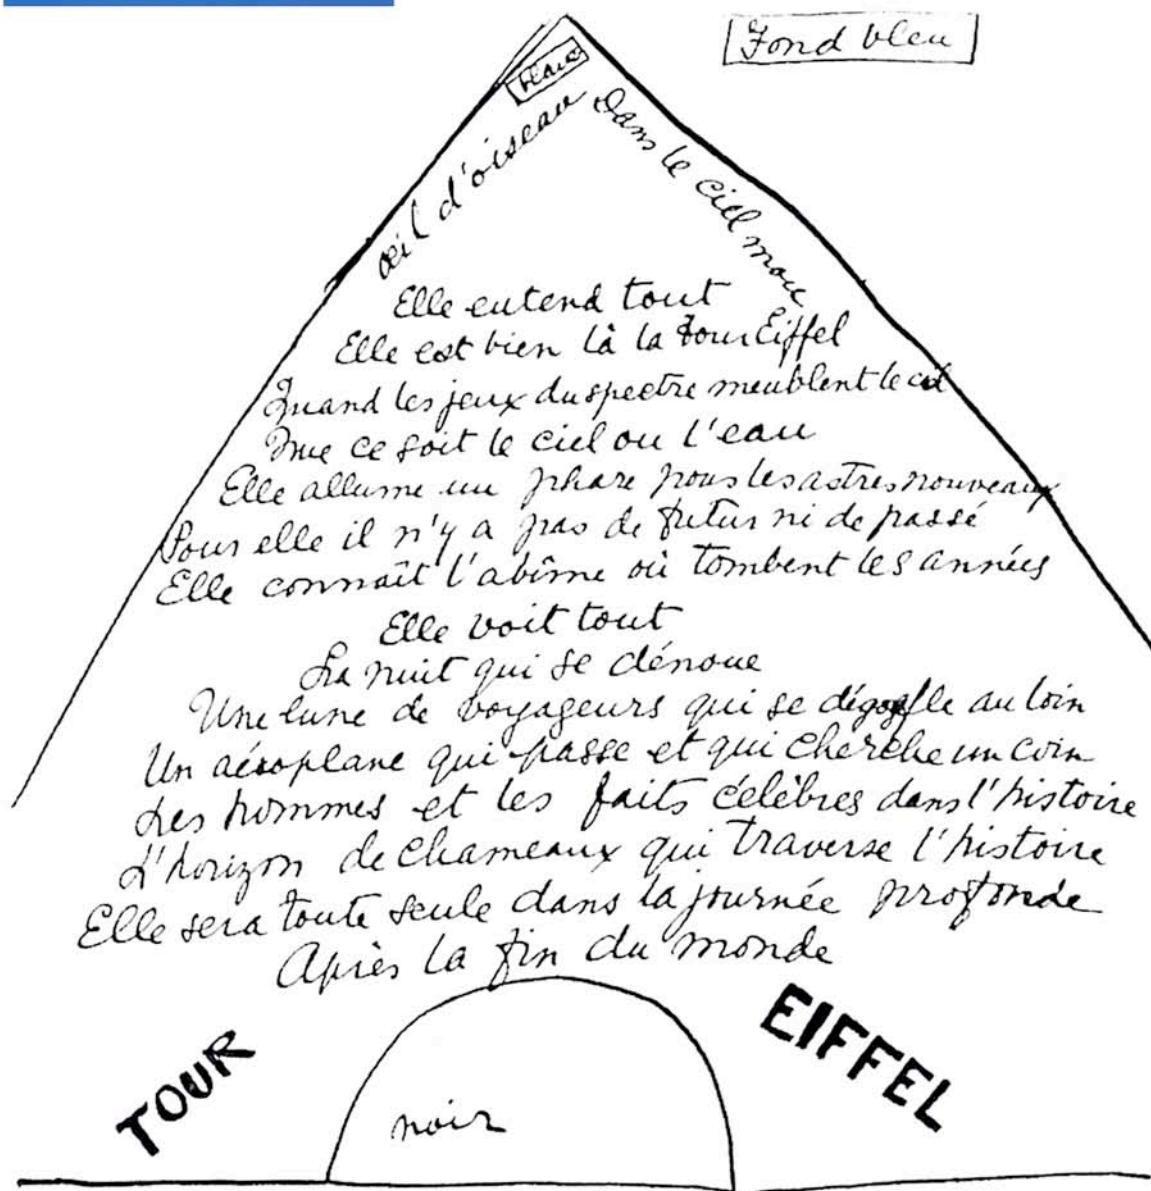 Fond bleu
blanc
Œil d'oiseau
Dans le ciel mou
Elle entend tout
Elle est bien là la tour Eiffel
Quand les jeux du spectre meublent le ciel
Que ce soit le ciel ou l'eau
Elle allume un phare pour les astres nouveaux
Pour elle il n'y a pas de futur ni de passé
Elle connaît l'abîme où tombent les années
Elle voit tout
La nuit qui se dénoue
Une lune de voyageurs qui se dégonfle au loin
Un aéroplane qui passe et qui cherche un coin
Les hommes et les faits célèbres dans l'histoire
L'horizon de chameaux qui traverse l'histoire
Elle sera toute seule dans la journée profonde
Après la fin du monde
TOUR
EIFFEL
noir